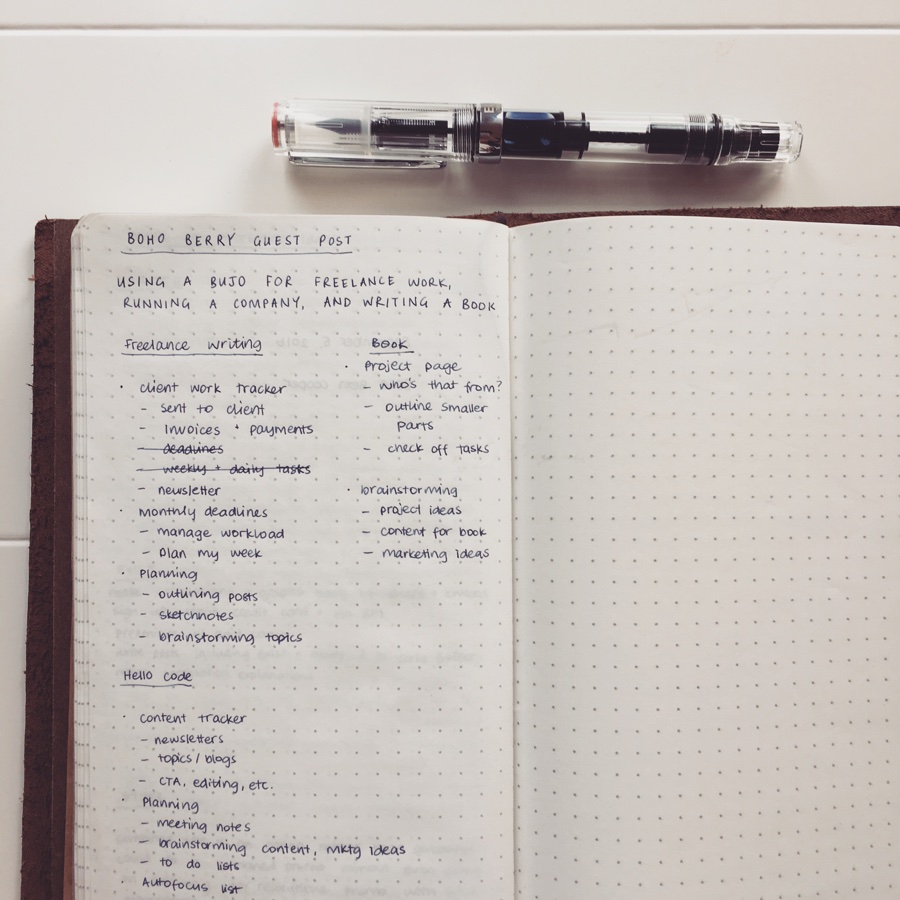 BOHO BERRY GUEST POST
USING A BUJO FOR FREELANCE WORK,
RUNNING A COMPANY, AND WRITING A BOOK
Freelance writing
· client work tracker
- sent to client
- invoices + payments
- deadlines
- weekly + daily tasks
- newsletter
· Monthly deadlines
- manage workload
- plan my week
· Planning
- outlining posts
- sketchnotes
- brainstorming topics
Hello code
· content tracker
- newsletters
- topics / blogs
- CTA, editing, etc.
· Planning
- meeting notes
- brainstorming content, mktg ideas
- to do lists
· Autofocus list
Book
· Project page
- who's that from?
- outline smaller
parts
- check off tasks
· brainstorming
- project ideas
- content for book
- marketing ideas